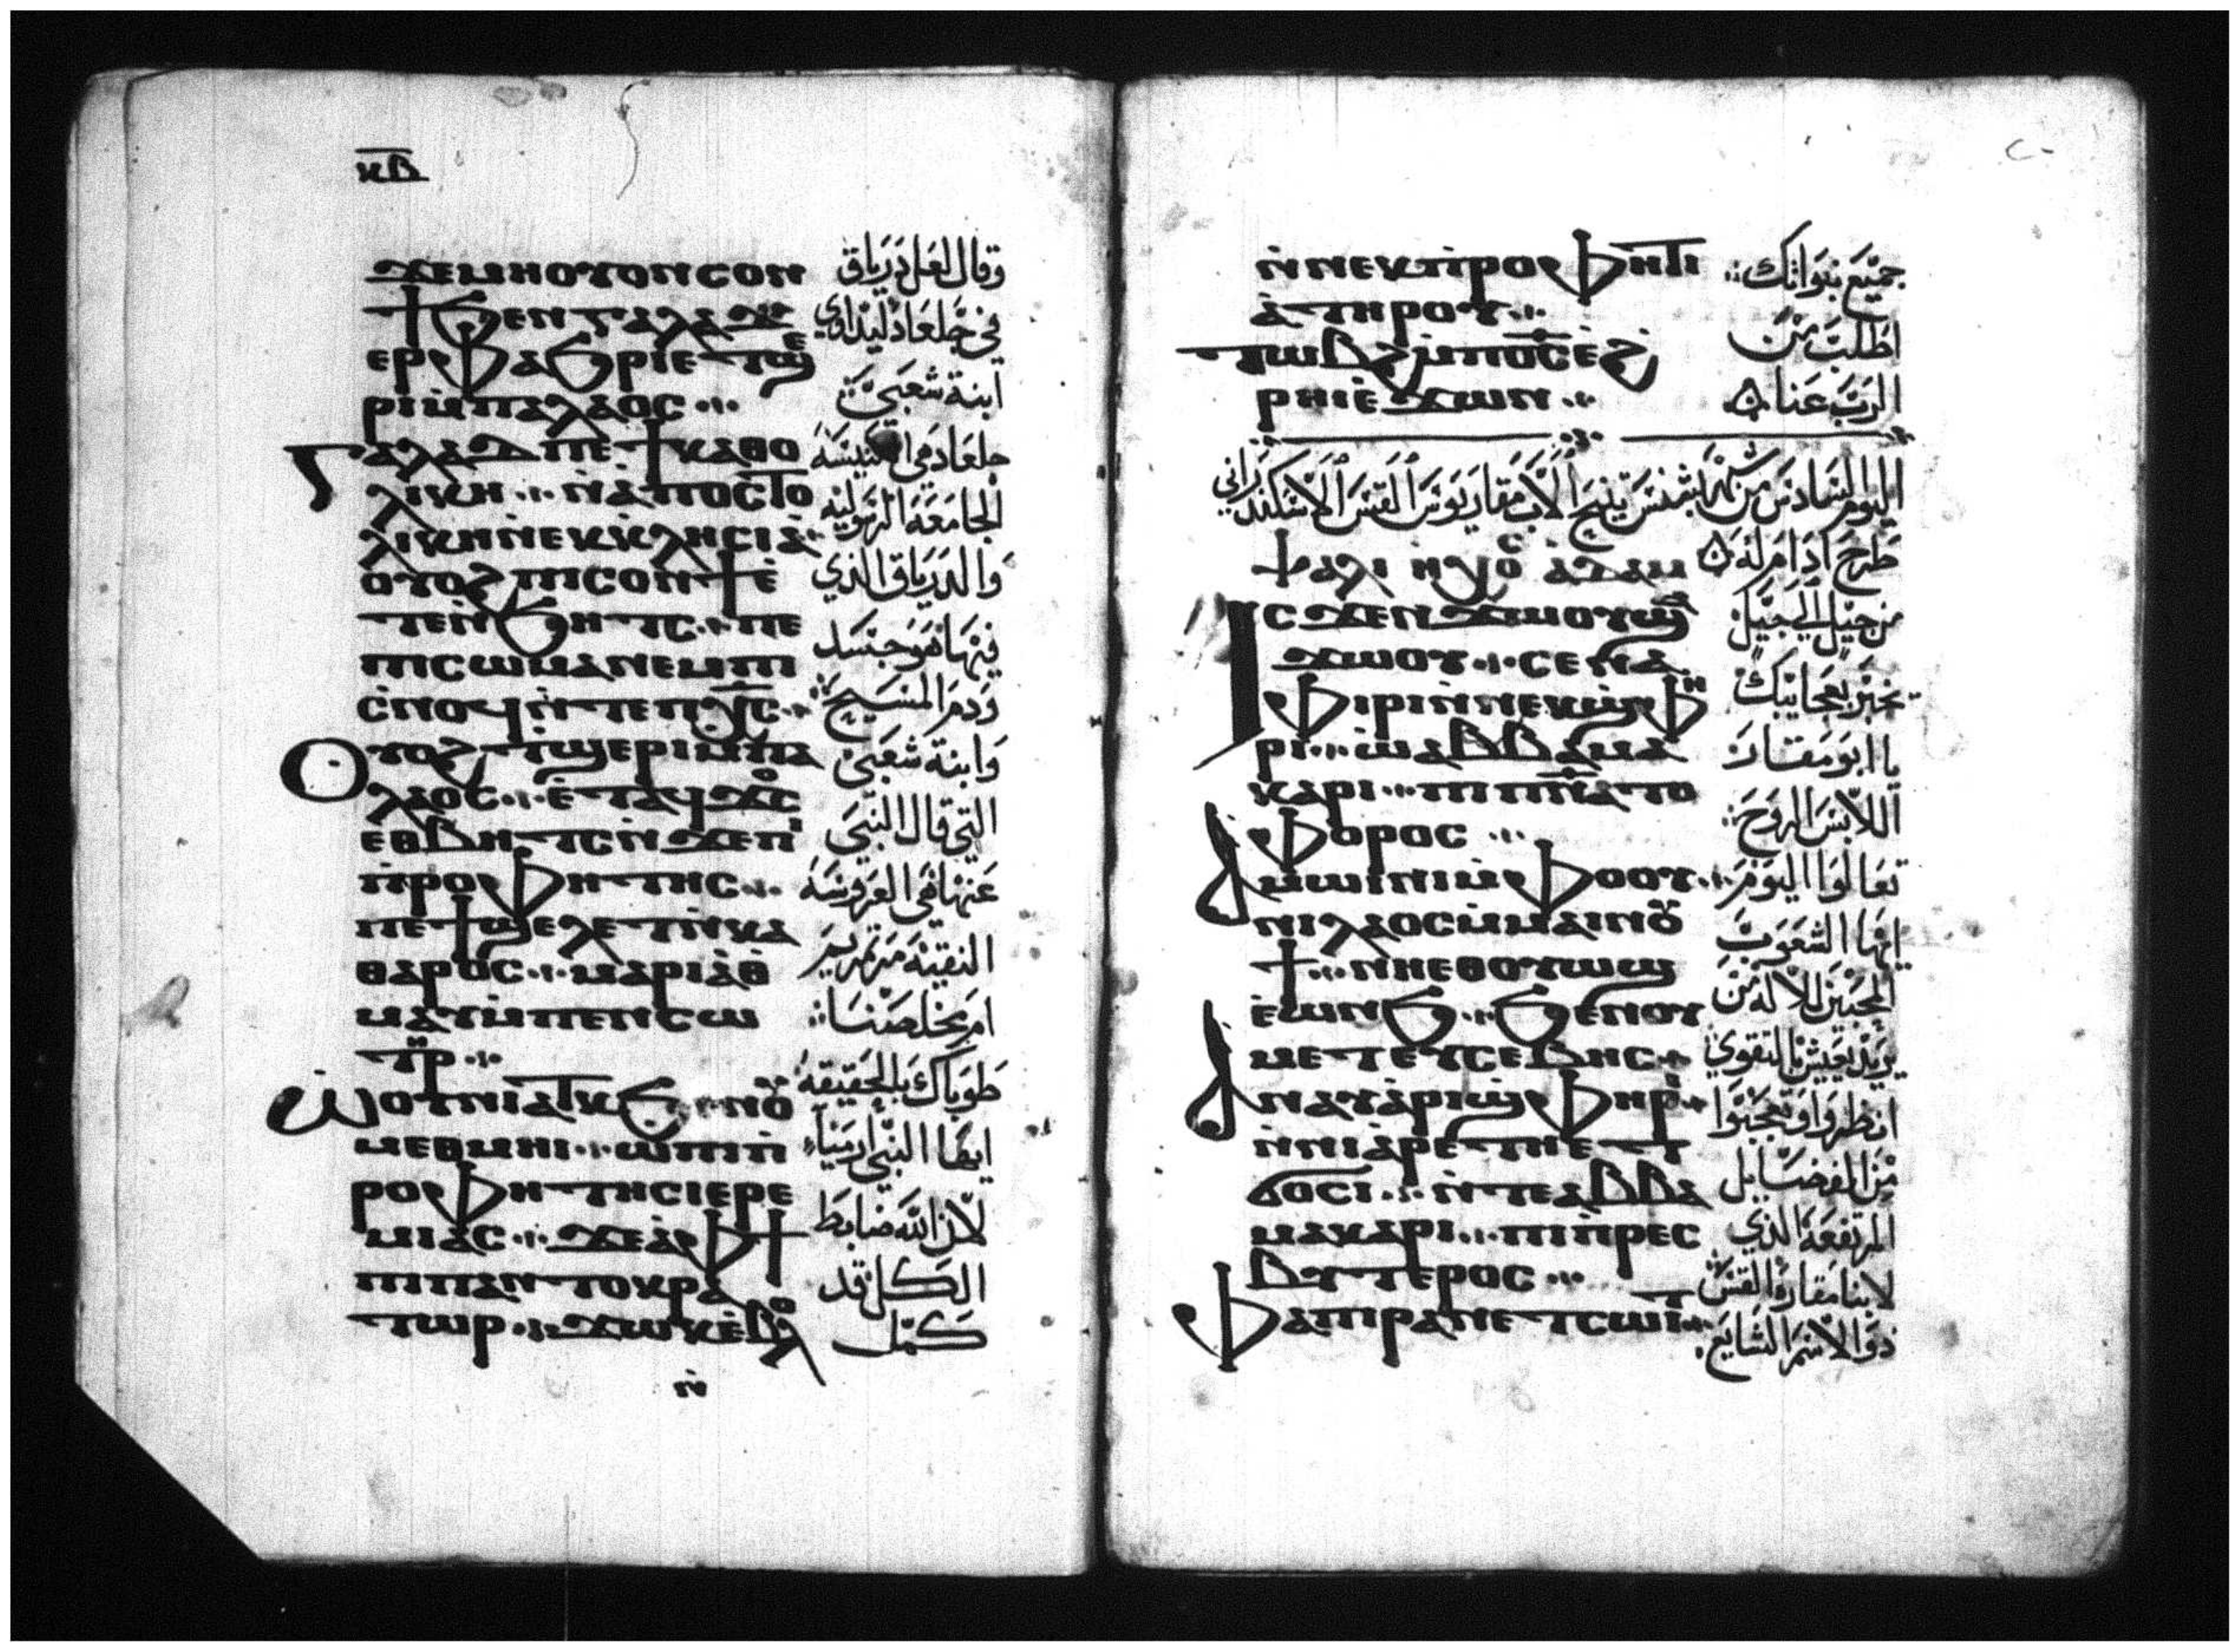 ⲕⲃ
ϫⲉⲙⲏⲟⲩⲟⲛⲥⲟⲛ
ϯϧⲉⲛⲅⲁⲗⲁⲁⲇ
ⲉⲣⲫⲁϧⲣⲓⲉⲧϣⲉ
ⲣⲓⲙ̀ⲡⲁⲗⲁⲟⲥ
ⲅⲁⲗⲁⲁⲇⲡⲉϯⲕⲁⲑⲟ
ⲗⲓⲕⲏ ⲛ̀ⲁ̀ⲡⲟⲥⲧⲟ
ⲗⲓⲕⲏⲛ̀ⲉⲕⲕ̀ⲗⲏⲥⲓⲁ̀
ⲟⲩⲟϩⲡⲓⲥⲟⲛϯⲉ̀
ⲧⲉⲛ̀ϧⲏⲧⲥ ⲡⲉ
ⲡⲓⲥⲱⲙⲁⲛⲉⲙⲡⲓ
ⲥ̀ⲛⲟϥⲛ̀ⲧⲉⲡⲭ̅ⲥ̅
ⲟⲩⲟϩⲧ̀ϣⲉⲣⲓⲙ̀ⲡⲁ
ⲗⲁⲟⲥ ⲉ̀ⲧⲁϥϫⲟⲥ
ⲉⲑⲃⲏⲧⲥⲛ̀ϫⲉⲡⲓ
ⲡ̀ⲣⲟⲫⲏⲧⲏⲥ
ⲡⲉϯϣⲉⲗⲉⲧⲛ̀ⲕⲁ
ⲑⲁⲣⲟⲥ ⲙⲁⲣⲓⲁ̀ⲑ̀
ⲙⲁⲩⲙ̀ⲡⲉⲛⲥⲱ
ⲧⲏⲣ
ⲱ̀ⲟⲩⲛⲓⲁⲧⲕϧⲉⲛⲟⲩ
ⲙⲉⲑⲙⲏⲓ ⲱⲡⲓⲡ̀
ⲣⲟⲫⲏⲧⲏⲥⲓⲉⲣⲉ
ⲙⲓⲁⲥ ϫⲉⲁ̀ⲫϯ
ⲡⲓⲡⲁⲛⲧⲟⲕⲣⲁ
ⲧⲱⲣ ϫⲱⲕⲉ̀ⲃⲟⲗ
ⲛ̀
وقال لعل درياق
في جلعاد ليداوي
ابنة شعبي
جلعاد هي الكنيسة
الجامعة الرسولية
والدرياق الذي
فيها هو جسد
ودم المسيح
وابنة شعبي
التي قال النبي
عنها هي العروسة
النقية مرتمريم
ام مخلصنا
طوباك بالحقيقة
ايها النبي ارميا
لان الله ضابط
الكل قد
كمل
ⲛ̀ⲛⲉⲕⲡ̀ⲣⲟⲫⲏⲧⲓ
ⲁ̀ⲧⲏⲣⲟⲩ
ⲧⲱⲃϩⲙ̀ⲡⲟ̅ⲥ̅ⲉ̀ϩ
ⲣⲏⲓⲉ̀ϫⲱⲛ
جميع نبواتك
اطلب من
الرب عنا
اليوم السادس من شهر بشنس ينيح الاب مقاريوس القس الاسكندراني
ⲯⲁⲗⲓ ⲏⲭⲟⲥ ⲁⲇⲁⲙ
طرح ادام له
ⲓⲥϫⲉⲛϫⲱⲟⲩϣⲁ
ϫⲱⲟⲩ ⲥⲉⲛⲁ
ⲫⲓⲣⲓⲛ̀ⲛⲉⲕϣ̀ⲫⲏ
ⲣⲓ ⲱⲁⲃⲃⲁⲙⲁ
ⲕⲁⲣⲓ ⲡⲓⲡ̅ⲛ̅ⲁ̅ⲧⲟ
ⲫⲟⲣⲟⲥ
ⲁⲙⲱⲓⲛⲓⲙ̀ⲫⲟⲟⲩ
ⲛⲓⲗⲁⲟⲥⲙ̀ⲙⲁⲓⲛⲟⲩ
ϯ ⲛⲏⲉⲑⲟⲩⲱϣ
ⲉ̀ⲱⲛϧ ϧⲉⲛⲟⲩ
ⲙⲉⲧⲉⲩⲥⲉⲃⲏⲥ
ⲁⲛⲁⲩⲁ̀ⲣⲓϣ̀ⲫⲏⲣⲓ
ⲛ̀ⲛⲓⲁ̀ⲣⲉⲧⲏⲉⲧ
ϭⲟⲥⲓ ⲛ̀ⲧⲉⲁⲃⲃⲁ
ⲙⲁⲕⲁⲣⲓ ⲡⲓⲡ̀ⲣⲉⲥ
ⲃⲩⲧⲉⲣⲟⲥ
ⲫⲁⲡⲓⲣⲁⲛⲉⲧⲥⲱⲓⲧ
من جيل الي جيل
يخبر بعجايبك
يا ابو مقار
اللابس الروح
تعالوا اليوم
ايها الشعوب
المحبين للاله من
يريد يعيش بالتقوي
انظروا وتعجبوا
من الفضايل
المرتفعة الذي
لابنا مقاره القس
ذو الاسم الشايع